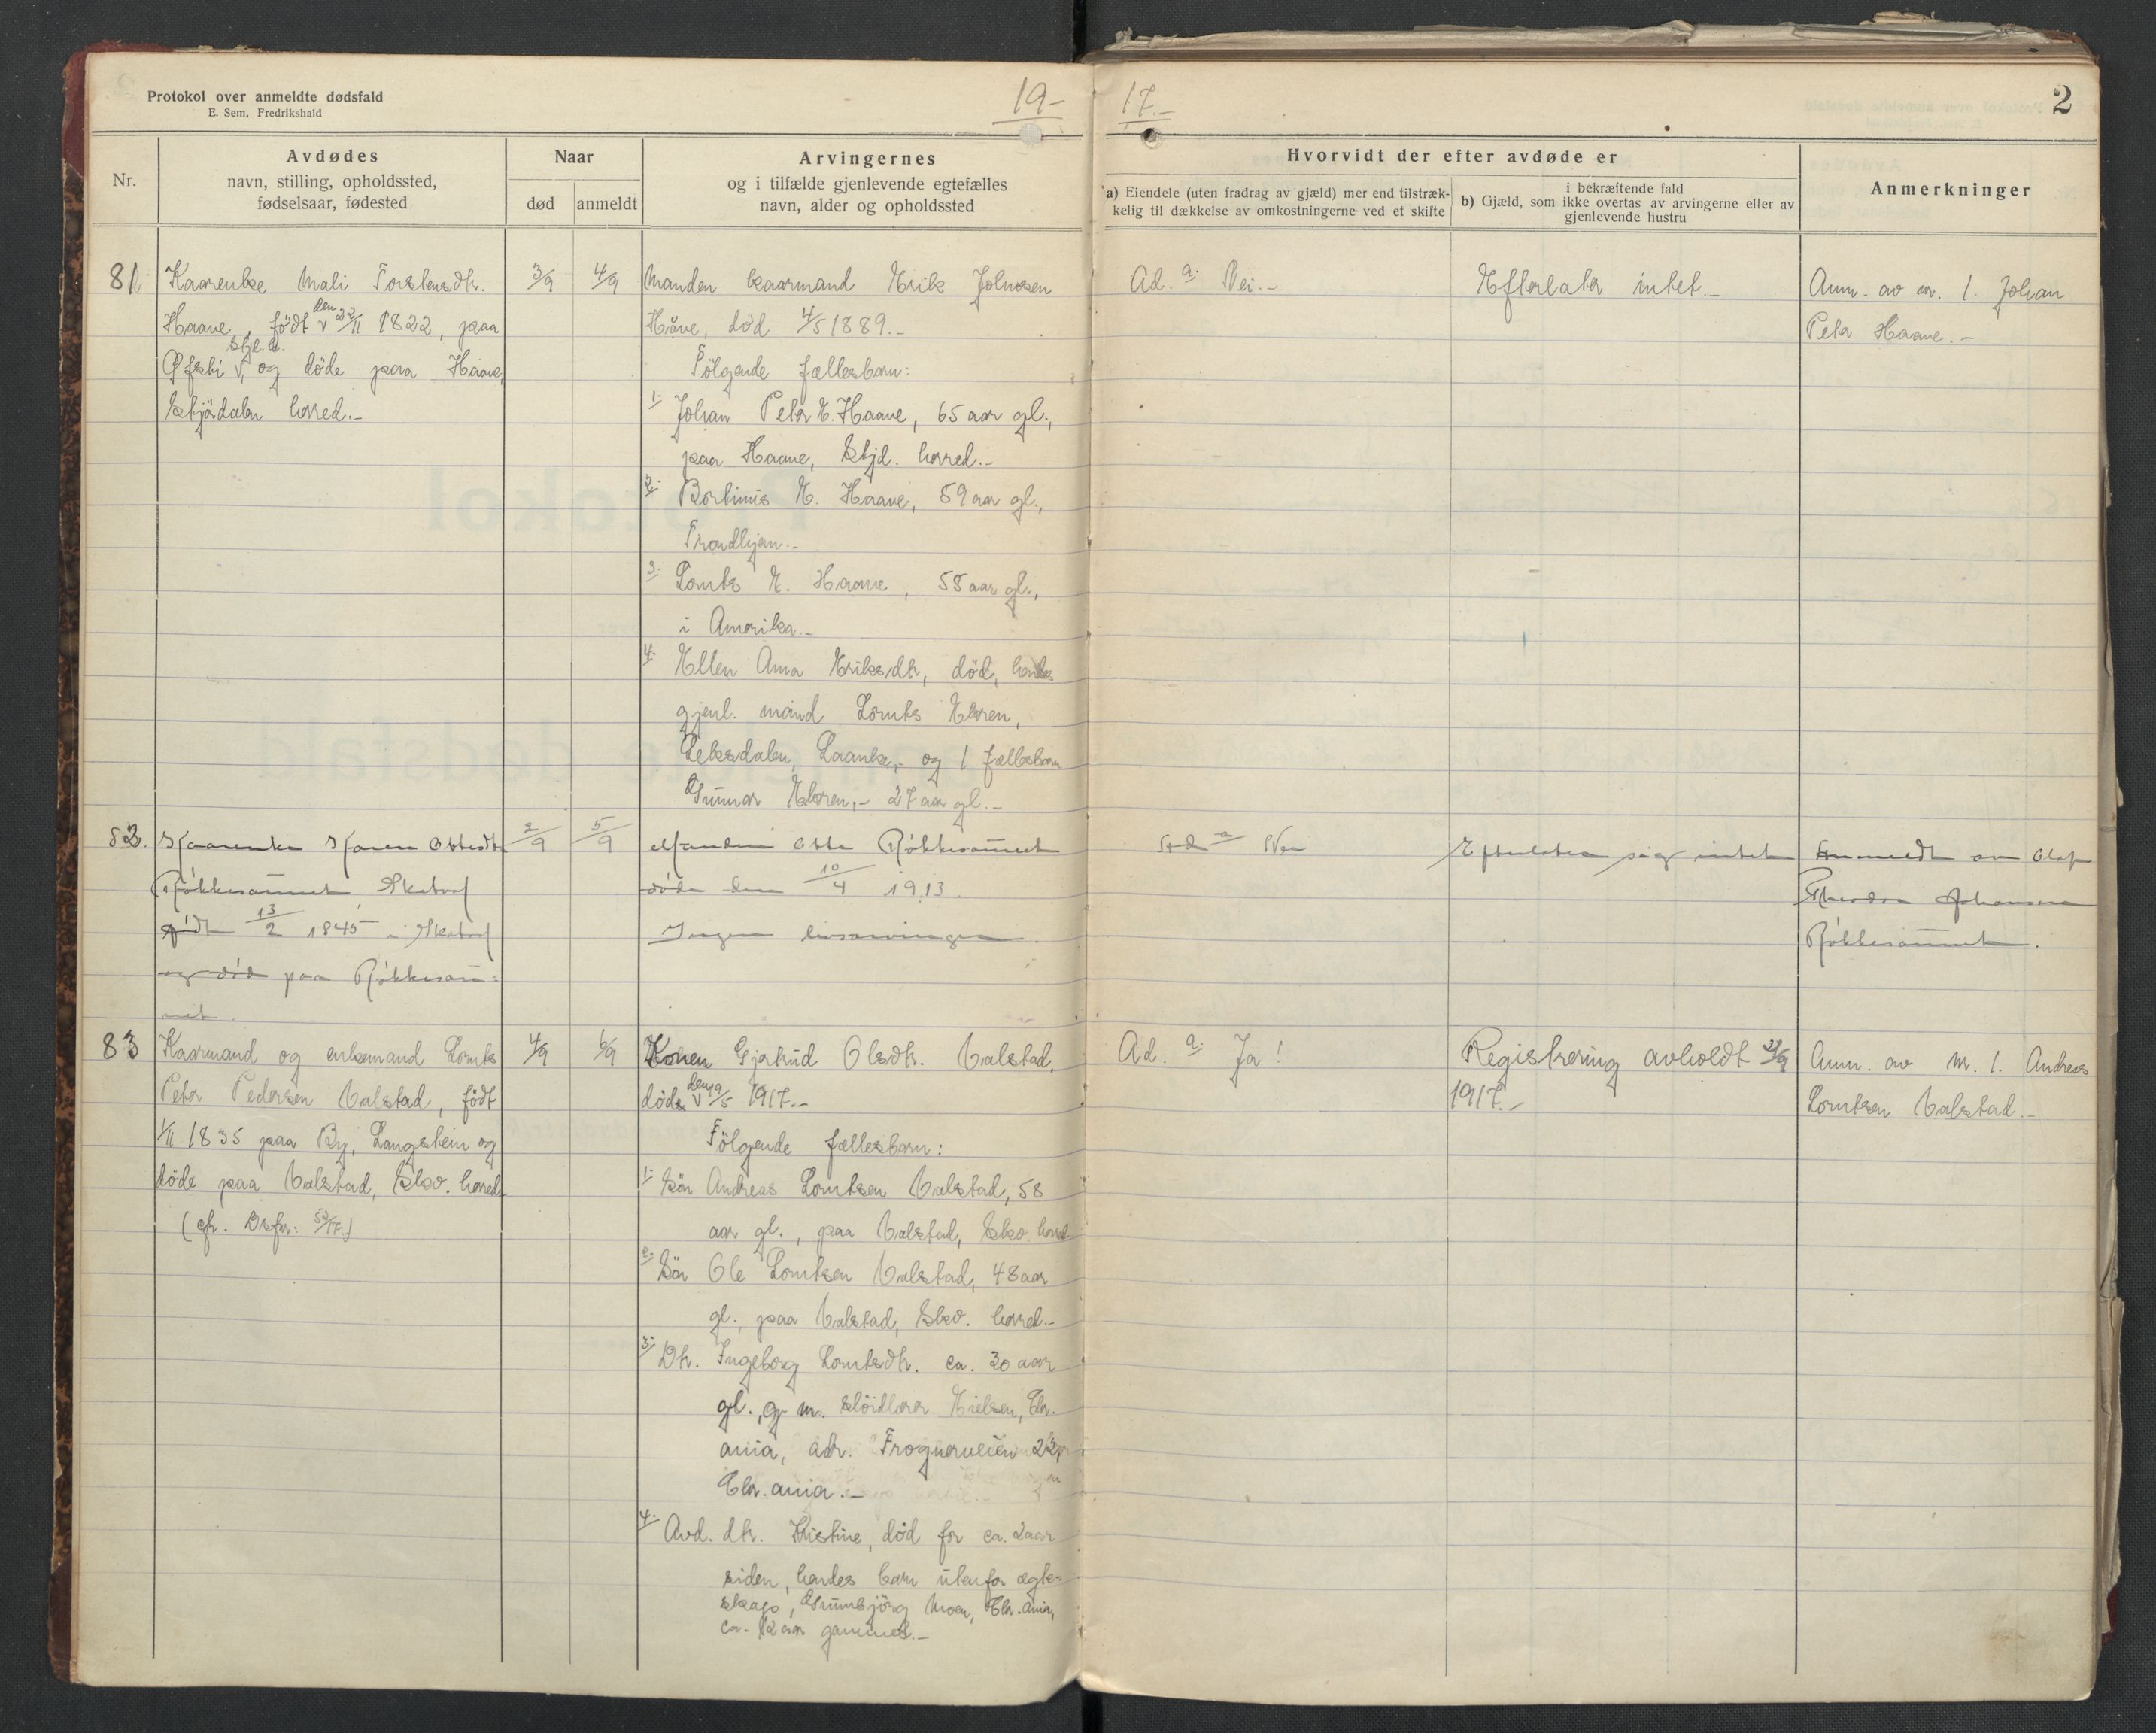 Protokol over anmeldte dødsfald
E. Sem, Fredrikshald
19-
17.-
2
Nr.
Avdødes
navn, stilling, opholdssted,
fødselsaar, fødested
Naar
død
anmeldt
Arvingernes
og i tilfælde gjenlevende egtefælles
navn, alder og opholdssted
Hvorvidt der efter avdøde er
a) Eiendele (uten fradrag av gjæld) mer end tilstræk-
kelig til dækkelse av omkostningerne ved et skifte
i bekræftende fald
b) Gjæld, som ikke overtas av arvingerne eller av
gjenlevende hustru
Anmerkninger
81
Kaarenke Mali Torstensdtr.
Haave, født den 22/11 1822, paa
Øfsti Stjd. h. og døde paa Haave,
Stjördalen herred.-
3/9
4/9
Manden kaarmand Erik Johnsen
Håve, död 4/5 1889.-
Følgende fællesbarn:
1. Johan Peter E. Haave, 65 aar gl.,
paa Haave, Stjd. herred.-
2. Bortinus E. Haave, 59 aar gl.,
Trondhjem.-
3. Lornts E. Haave, 58 aar gl.,
i Amerika.-
4. Ellen Anna Eriksdtr, död, hendes
gjenl. mand Lornts Elvren,
Leksdalen, Laanke,- og 1 fællesbarn
Gunnar Elvren,- 27 aar gl.-
Ad. a. Nei.-
Efterlater intet.-
Anm. av nr. 1. Johan
Peter Haave.-
82.
Kaarenke Karen Ottesdtr
Røkkesaunet, Skatval
født 13/2 1845 i Skatval
og død paa Røkkesau=
net.
2/9
5/9
Manden Otto Røkkesaunet
døde den 10/4 1913.
Ingen livsarvinger.
Ad a Nei
Efterlater sig intet
Anmeldt av Olaf
Johansen
Røkkesaunet.
83
Kaarmand og enkemand Lornts
Peter Pedersen Valstad, födt
1/11 1835 paa By, Langstein og
døde paa Valstad, Skv. herred.
(cfr. Dsfpr: 52/17.)
4/9
6/9
Konen Gjertrud Olsdtr. Valstad,
døde den 9/5 1917.-
Følgende fællesbarn:
1. Sön Andreas Lorntsen Valstad, 58
aar gl., paa Valstad, Skv. herred.
2. Sön Ole Lorntsen Valstad, 48 aar
gl., paa Valstad, Skv. herred.-
3. Dtr. Ingeborg Lorntsdtr. ca. 30 aar
gl., g. m. slöidlærer Nielsen, Chr.
ania, adr. Frognerveien
Chr.ania.-
4. Avd. dtr. Kristine, död for ca. 2 aar
siden, hendes barn utenfor ægte=
skap, Gunnbjörg Moen, Chr.ania,
ca. 12 aar gammel.-
Ad. a. Ja!
Registrering avholdt 21/9
1917.-
Anm. av nr. 1. Andreas
Lorntsen Valstad.-